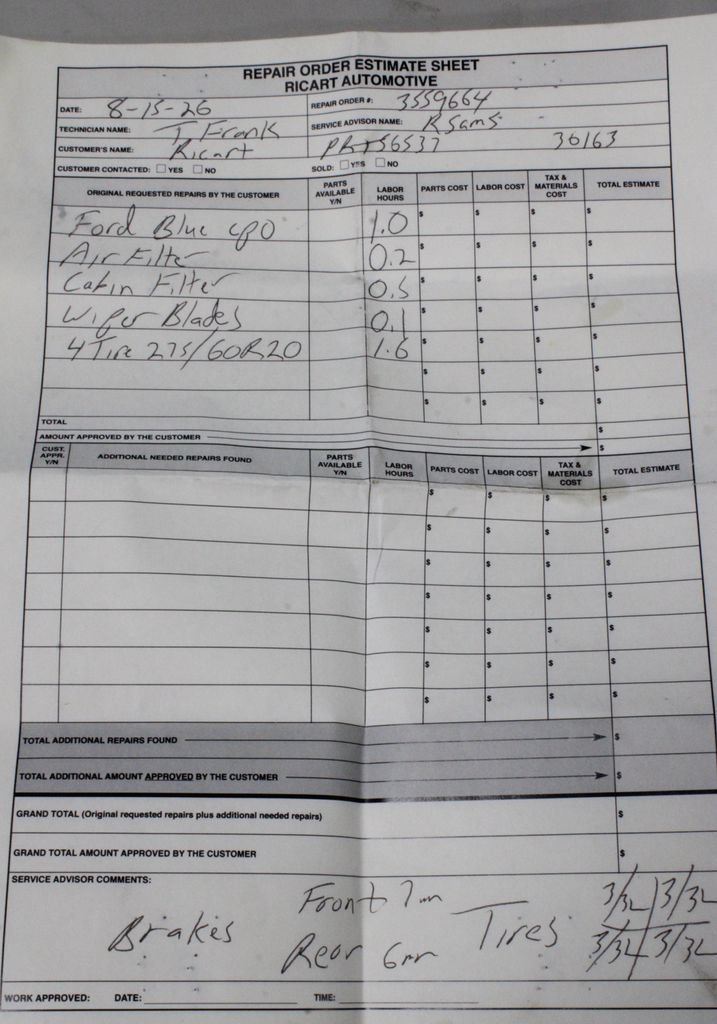 REPAIR ORDER ESTIMATE SHEET
RICART AUTOMOTIVE
DATE: 8-15-26 REPAIR ORDER #: 3559664
TECHNICIAN NAME: T Frank SERVICE ADVISOR NAME: R Sams
CUSTOMER'S NAME: Ricart 56537 36163
CUSTOMER CONTACTED: YES NO SOLD: YES NO
ORIGINAL REQUESTED REPAIRS BY THE CUSTOMER PARTS AVAILABLE Y/N LABOR HOURS PARTS COST LABOR COST TAX & MATERIALS COST TOTAL ESTIMATE
Ford Blue cpo 1.0 $ $ $ $
Air Filter 0.2 $ $ $ $
Cabin Filter 0.5 $ $ $ $
Wiper Blades 0.1 $ $ $ $
4 Tire 275/60R20 1.6 $ $ $ $
$ $ $ $
$ $ $ $
TOTAL $
AMOUNT APPROVED BY THE CUSTOMER $
CUST. APPR. Y/N ADDITIONAL NEEDED REPAIRS FOUND PARTS AVAILABLE Y/N LABOR HOURS PARTS COST LABOR COST TAX & MATERIALS COST TOTAL ESTIMATE
$ $ $ $
$ $ $ $
$ $ $ $
$ $ $ $
$ $ $ $
$ $ $ $
$ $ $ $
TOTAL ADDITIONAL REPAIRS FOUND $
TOTAL ADDITIONAL AMOUNT APPROVED BY THE CUSTOMER $
GRAND TOTAL (Original requested repairs plus additional needed repairs) $
GRAND TOTAL AMOUNT APPROVED BY THE CUSTOMER $
SERVICE ADVISOR COMMENTS:
Front 7mm 3/32 3/32
Brakes Tires
Rear 6mm 3/32 3/32
WORK APPROVED: DATE: TIME: